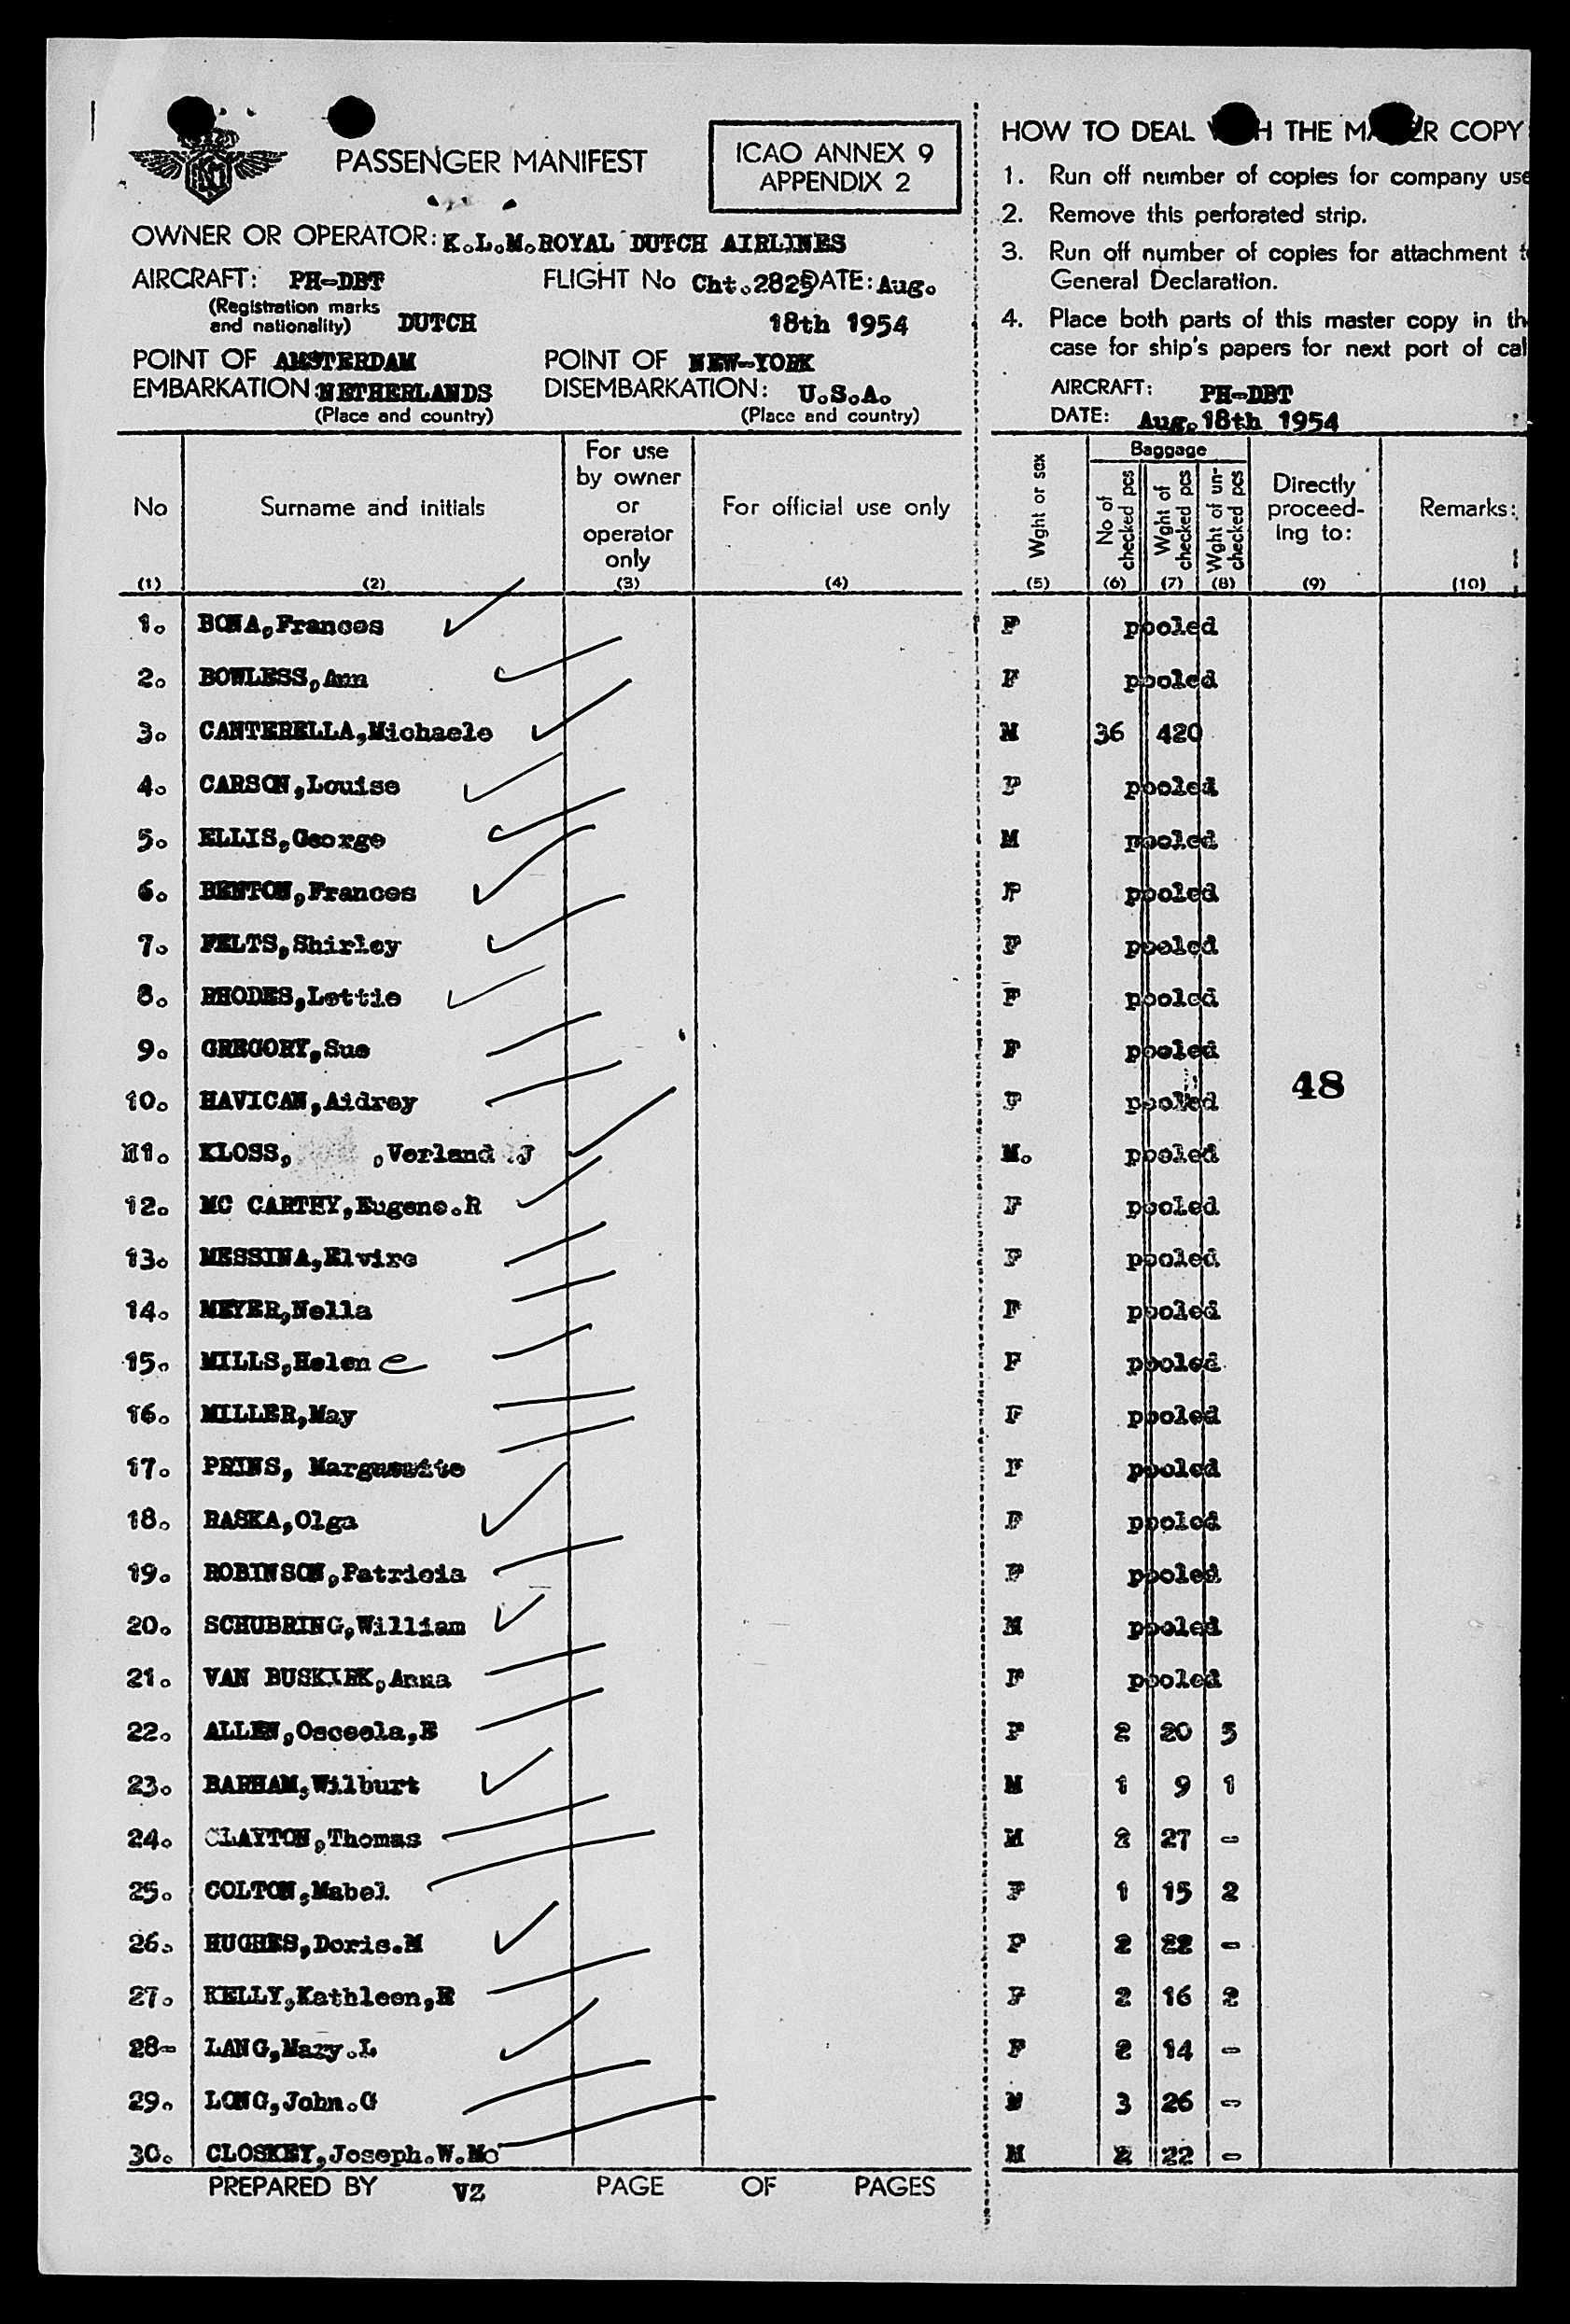 PASSENGER MANIFEST
ICAO ANNEX 9
APPENDIX 2
OWNER OR OPERATOR: K.L.M. ROYAL DUTCH AIRLINES
AIRCRAFT: PH-DBT FLIGHT No Cht.2825 DATE: Aug.
(Registration marks
and nationality) DUTCH 18th 1954
POINT OF AMSTERDAM POINT OF NEW-YORK
EMBARKATION: NETHERLANDS DISEMBARKATION: U.S.A.
(Place and country) (Place and country)
HOW TO DEAL THE COPY
1. Run off number of copies for company use
2. Remove this perforated strip.
3. Run off number of copies for attachment
General Declaration.
4. Place both parts of this master copy in
case for ship's papers for next port of
AIRCRAFT: PH-DBT
DATE: Aug. 18th 1954
No Surname and initials For use by owner or operator only For official use only Wght or sex Baggage No of checked pcs Wght of checked pcs Wght of un-checked pcs Directly proceed-ing to: Remarks:
(1) (2) (3) (4) (5) (6) (7) (8) (9) (10)
1. BONA,Frances F pooled
2. BOWLESS,Ann F pooled
3. CANTERELLA,Michaele M 36 420
4. CARSON,Louise F pooled
5. ELLIS,George M pooled
6. BENTON,Frances F pooled
7. FELTS,Shirley F pooled
8. RHODES,Lottie F pooled
9. GREGORY,Sue F pooled
10. HAVICAN,Aidrey F pooled
48
11. KLOSS, ,Verland J M. pooled
12. MC CARTHY,Eugene.R F pooled
13. MESSINA,Elvire F pooled
14. MEYER,Nella F pooled
15. MILLS,Helen e F pooled
16. MILLER,May F pooled
17. PRINS, F pooled
18. RASKA,Olga F pooled
19. ROBINSON,Patricia F pooled
20. SCHUBRING,William M pooled
21. VAN BUSKIRK,Anna F pooled
22. ALLEN,Osceola,E F 2 20 5
23. BARHAM,Wilburt M 1 9 1
24. CLAYTON,Thomas M 2 27 -
25. COLTON,Mabel F 1 15 2
26. HUGHES,Doris.M F 2 22 -
27. KELLY,Kathleen,R F 2 16 2
28- LANG,Mary.L F 2 14 -
29. LONG,John.G M 3 26 -
30. CLOSKEY,Joseph.W.Mc M 2 22 -
PREPARED BY VZ PAGE OF PAGES